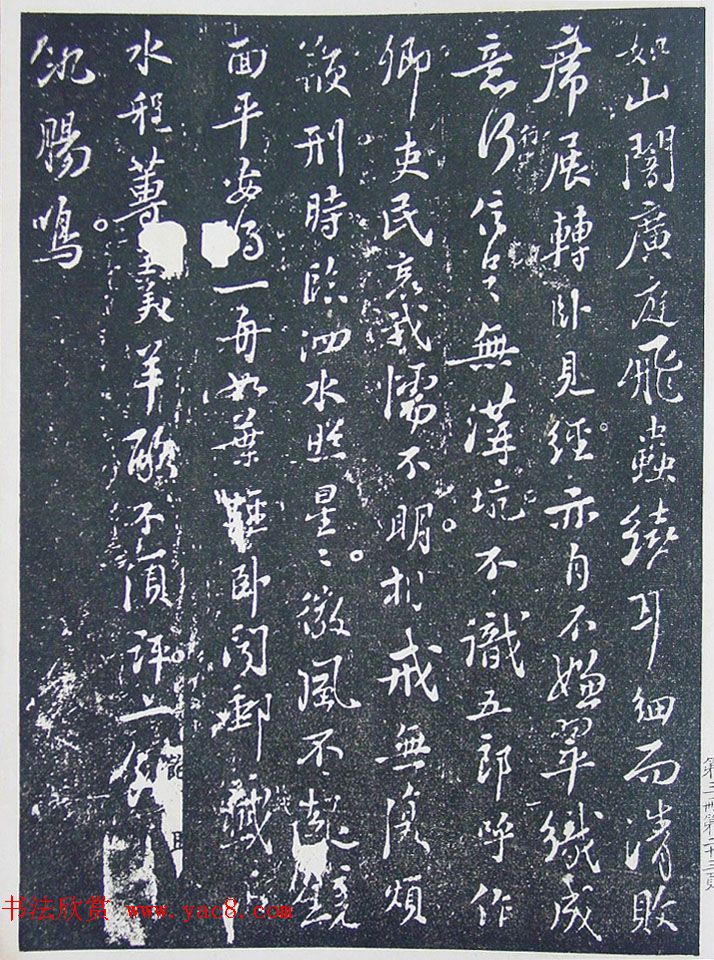 如山闇廣庭飛蟲繞耳細而清敗
席展轉卧見經亦自不嫌翠織成
意行信足無溝坑不識五郎呼作
行
卿吏民哀我懦不明相戒無復煩
鞭刑時臨泗水照星〻微風不起鏡
面平安得一舟如葉輕卧聞郵籤
水程蓴羹羊酪不須評一飽
飢腸鳴
第三冊第二十三頁
书法欣赏 www.yac8.com